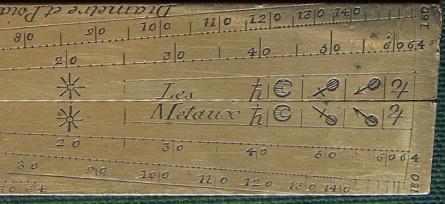 Diametre et Poid
80 90 100 110 120 130 140 180
20 30 40 50 60 64
☉ Les ♄ ☾ ♀ ♂ ♃
☉ Metaux ♄ ☾ ♀ ♂ ♃
20 30 40 50 60 64
80 90 100 110 120 130 140 180